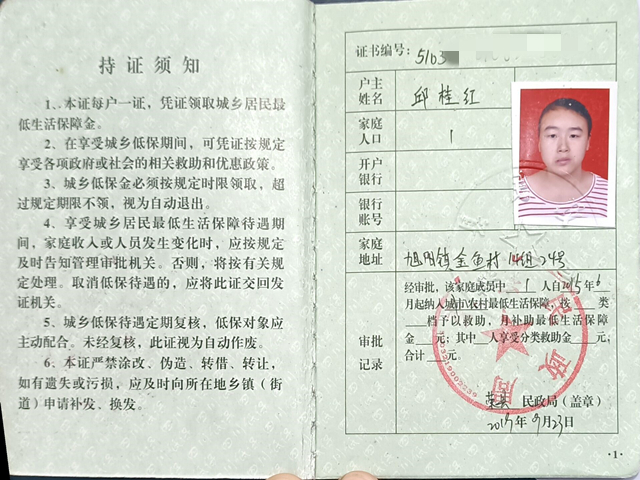 持证须知
1、本证每户一证，凭证领取城乡居民最
低生活保障金。
2、在享受城乡低保期间，可凭证按规定
享受各项政府或社会的相关救助和优惠政策。
3、城乡低保金必须按规定时限领取，超
过规定期限不领，视为自动退出。
4、享受城乡居民最低生活保障待遇期
间，家庭收入或人员发生变化时，应按规定
及时告知管理审批机关。否则，将按有关规
定处理。取消低保待遇的，应将此证交回发
证机关。
5、城乡低保待遇定期复核，低保对象应
主动配合。未经复核，此证视为自动作废。
6、本证严禁涂改、伪造、转借、转让，
如有遗失或污损，应及时向所在地乡镇（街
道）申请补发、换发。
证书编号：5103
户主
姓名 邱桂红
家庭
人口 1
开户
银行
银行
账号
家庭
地址 旭阳镇金鱼村14组24号
审批
记录
经审批，该家庭成员中 1 人自2015年6
月起纳入城市农村最低生活保障，按 类
档予以救助，月补助最低生活保障
金 元；其中 人享受分类救助金 元，
合计 元。
荣县 民政局（盖章）
年9月23日
民政局
·1·